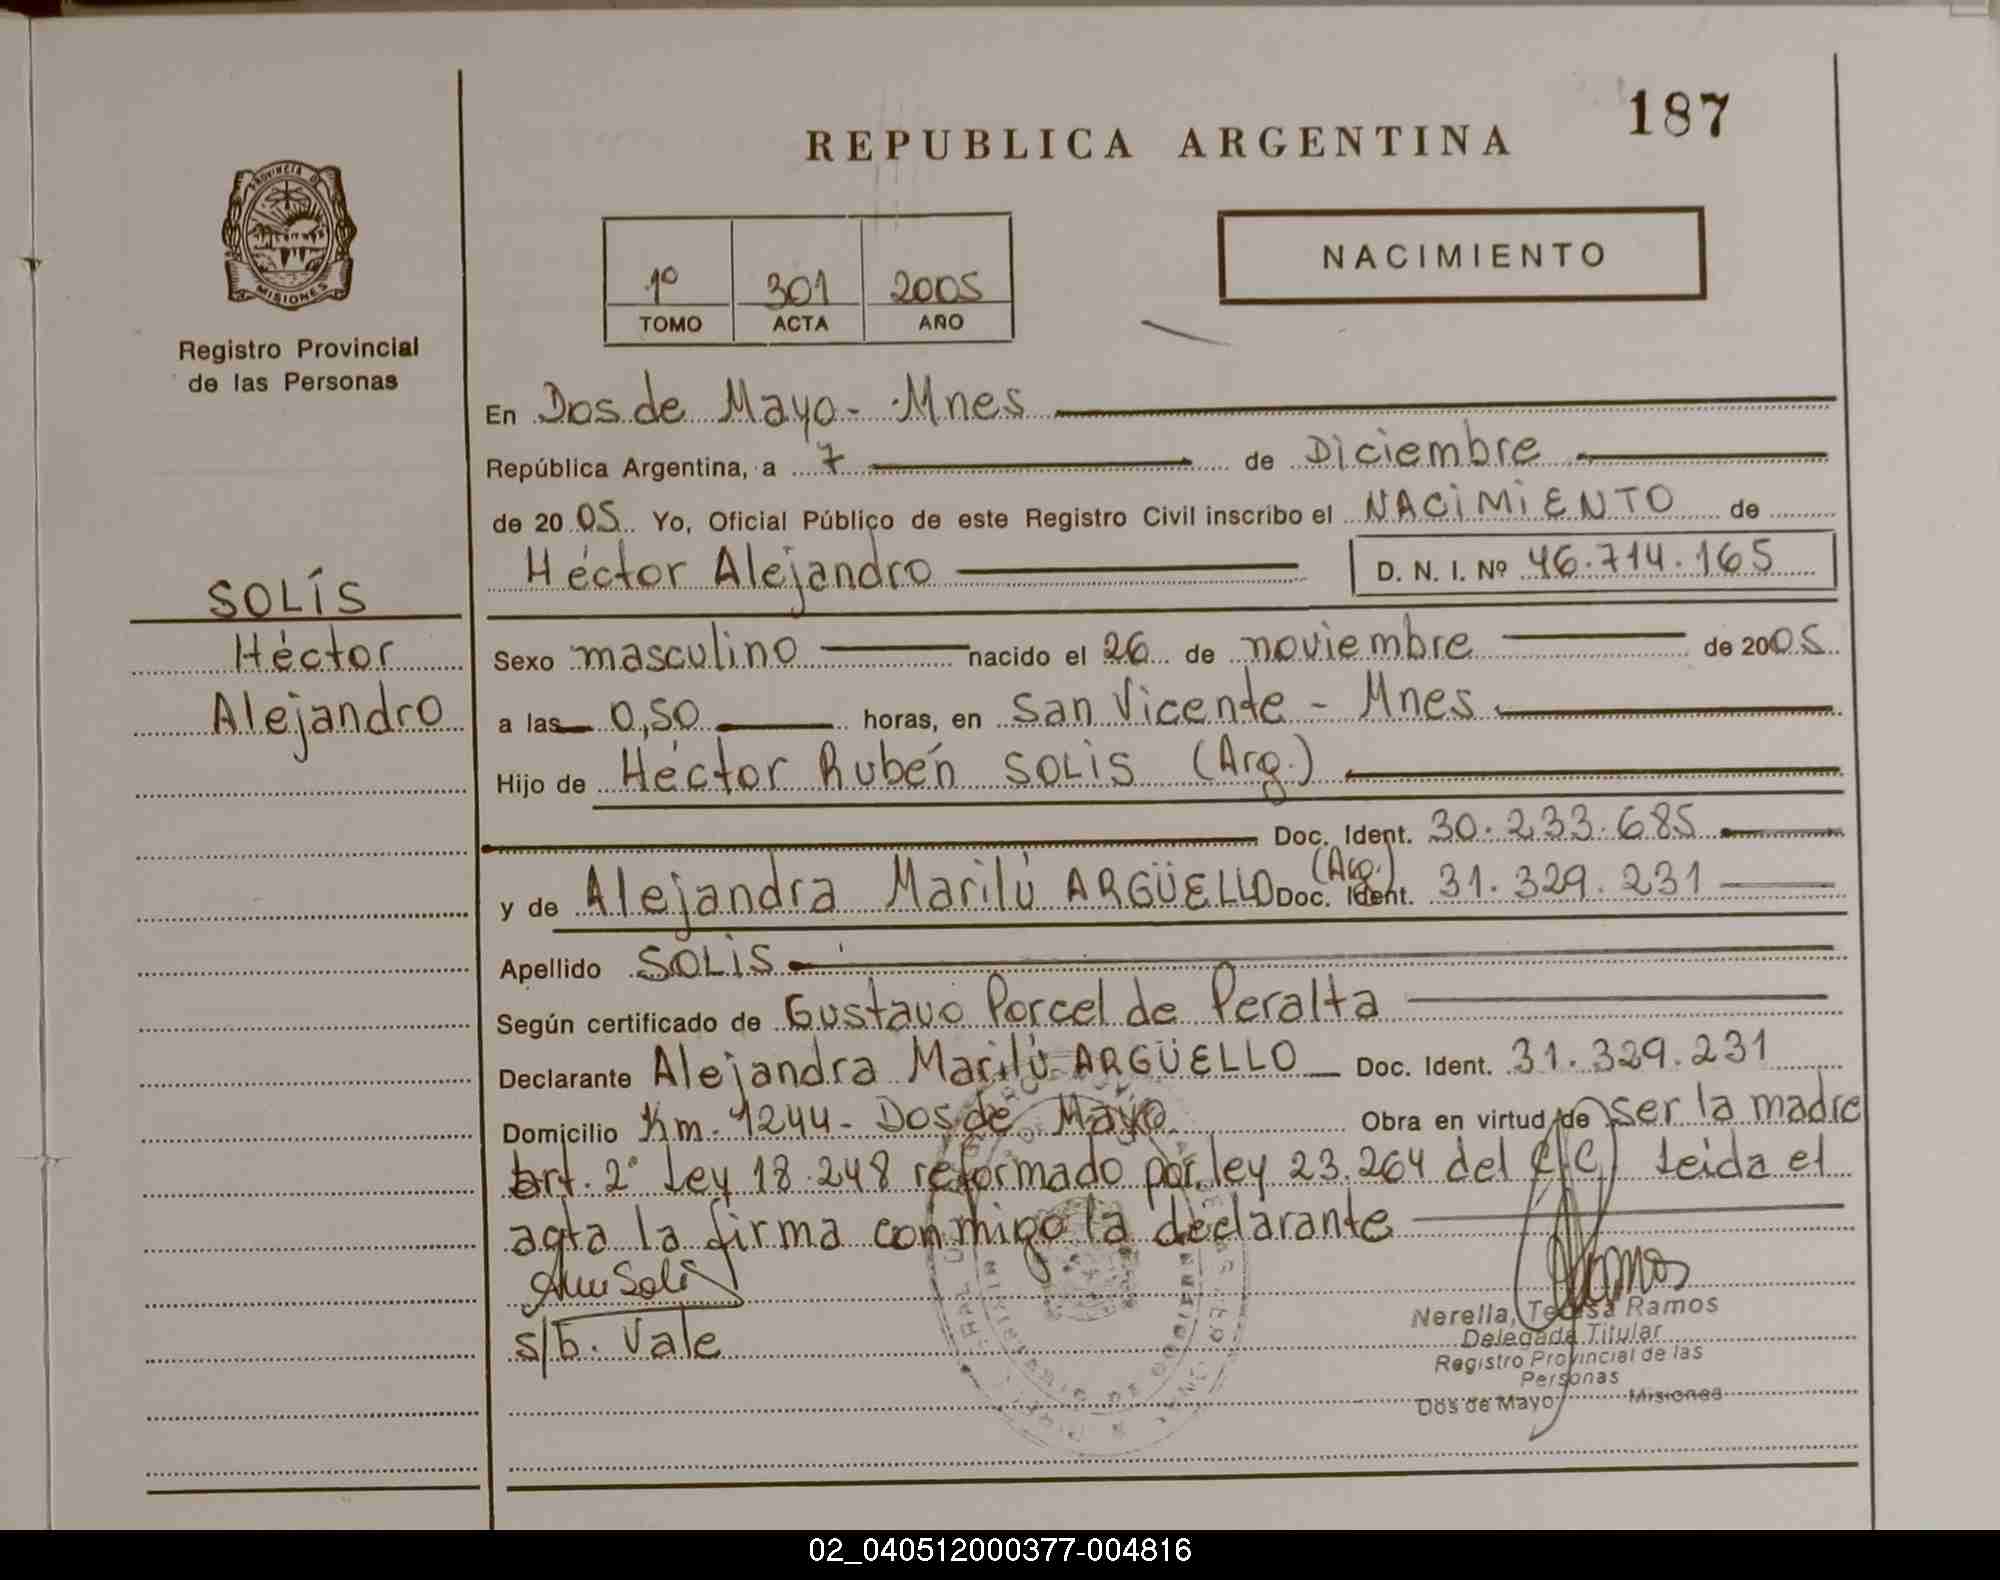 187
REPUBLICA ARGENTINA
PROVINCIA DE
MISIONES
Registro Provincial
de las Personas
1º 301 2005
TOMO ACTA AÑO
NACIMIENTO
SOLÍS
Héctor
Alejandro
En Dos de Mayo - Mnes
República Argentina, a 7 de Diciembre
de 2005 Yo, Oficial Público de este Registro Civil inscribo el NACIMIENTO de
Héctor Alejandro D. N. I. Nº 46.714.165
Sexo masculino nacido el 26 de noviembre de 2005
a las 0,50 horas, en San Vicente - Mnes
Hijo de Héctor Rubén SOLIS (Arg.)
Doc. Ident. 30.233.685
y de Alejandra Marilú ARGÜELLO (Arg.) Doc. Ident. 31.329.231
Apellido SOLIS
Según certificado de Gustavo Porcel de Peralta
Declarante Alejandra Marilú ARGÜELLO Doc. Ident. 31.329.231
Domicilio Km. 1244 - Dos de Mayo Obra en virtud de ser la madre
art. 2º Ley 18.248 reformado por ley 23.264 del C.C) Leida el
acta la firma conmigo la declarante
s/b. Vale
Nerella, Teresa Ramos
Delegada Titular
Registro Provincial de las
Personas
Dos de Mayo Misiones
02_040512000377-004816